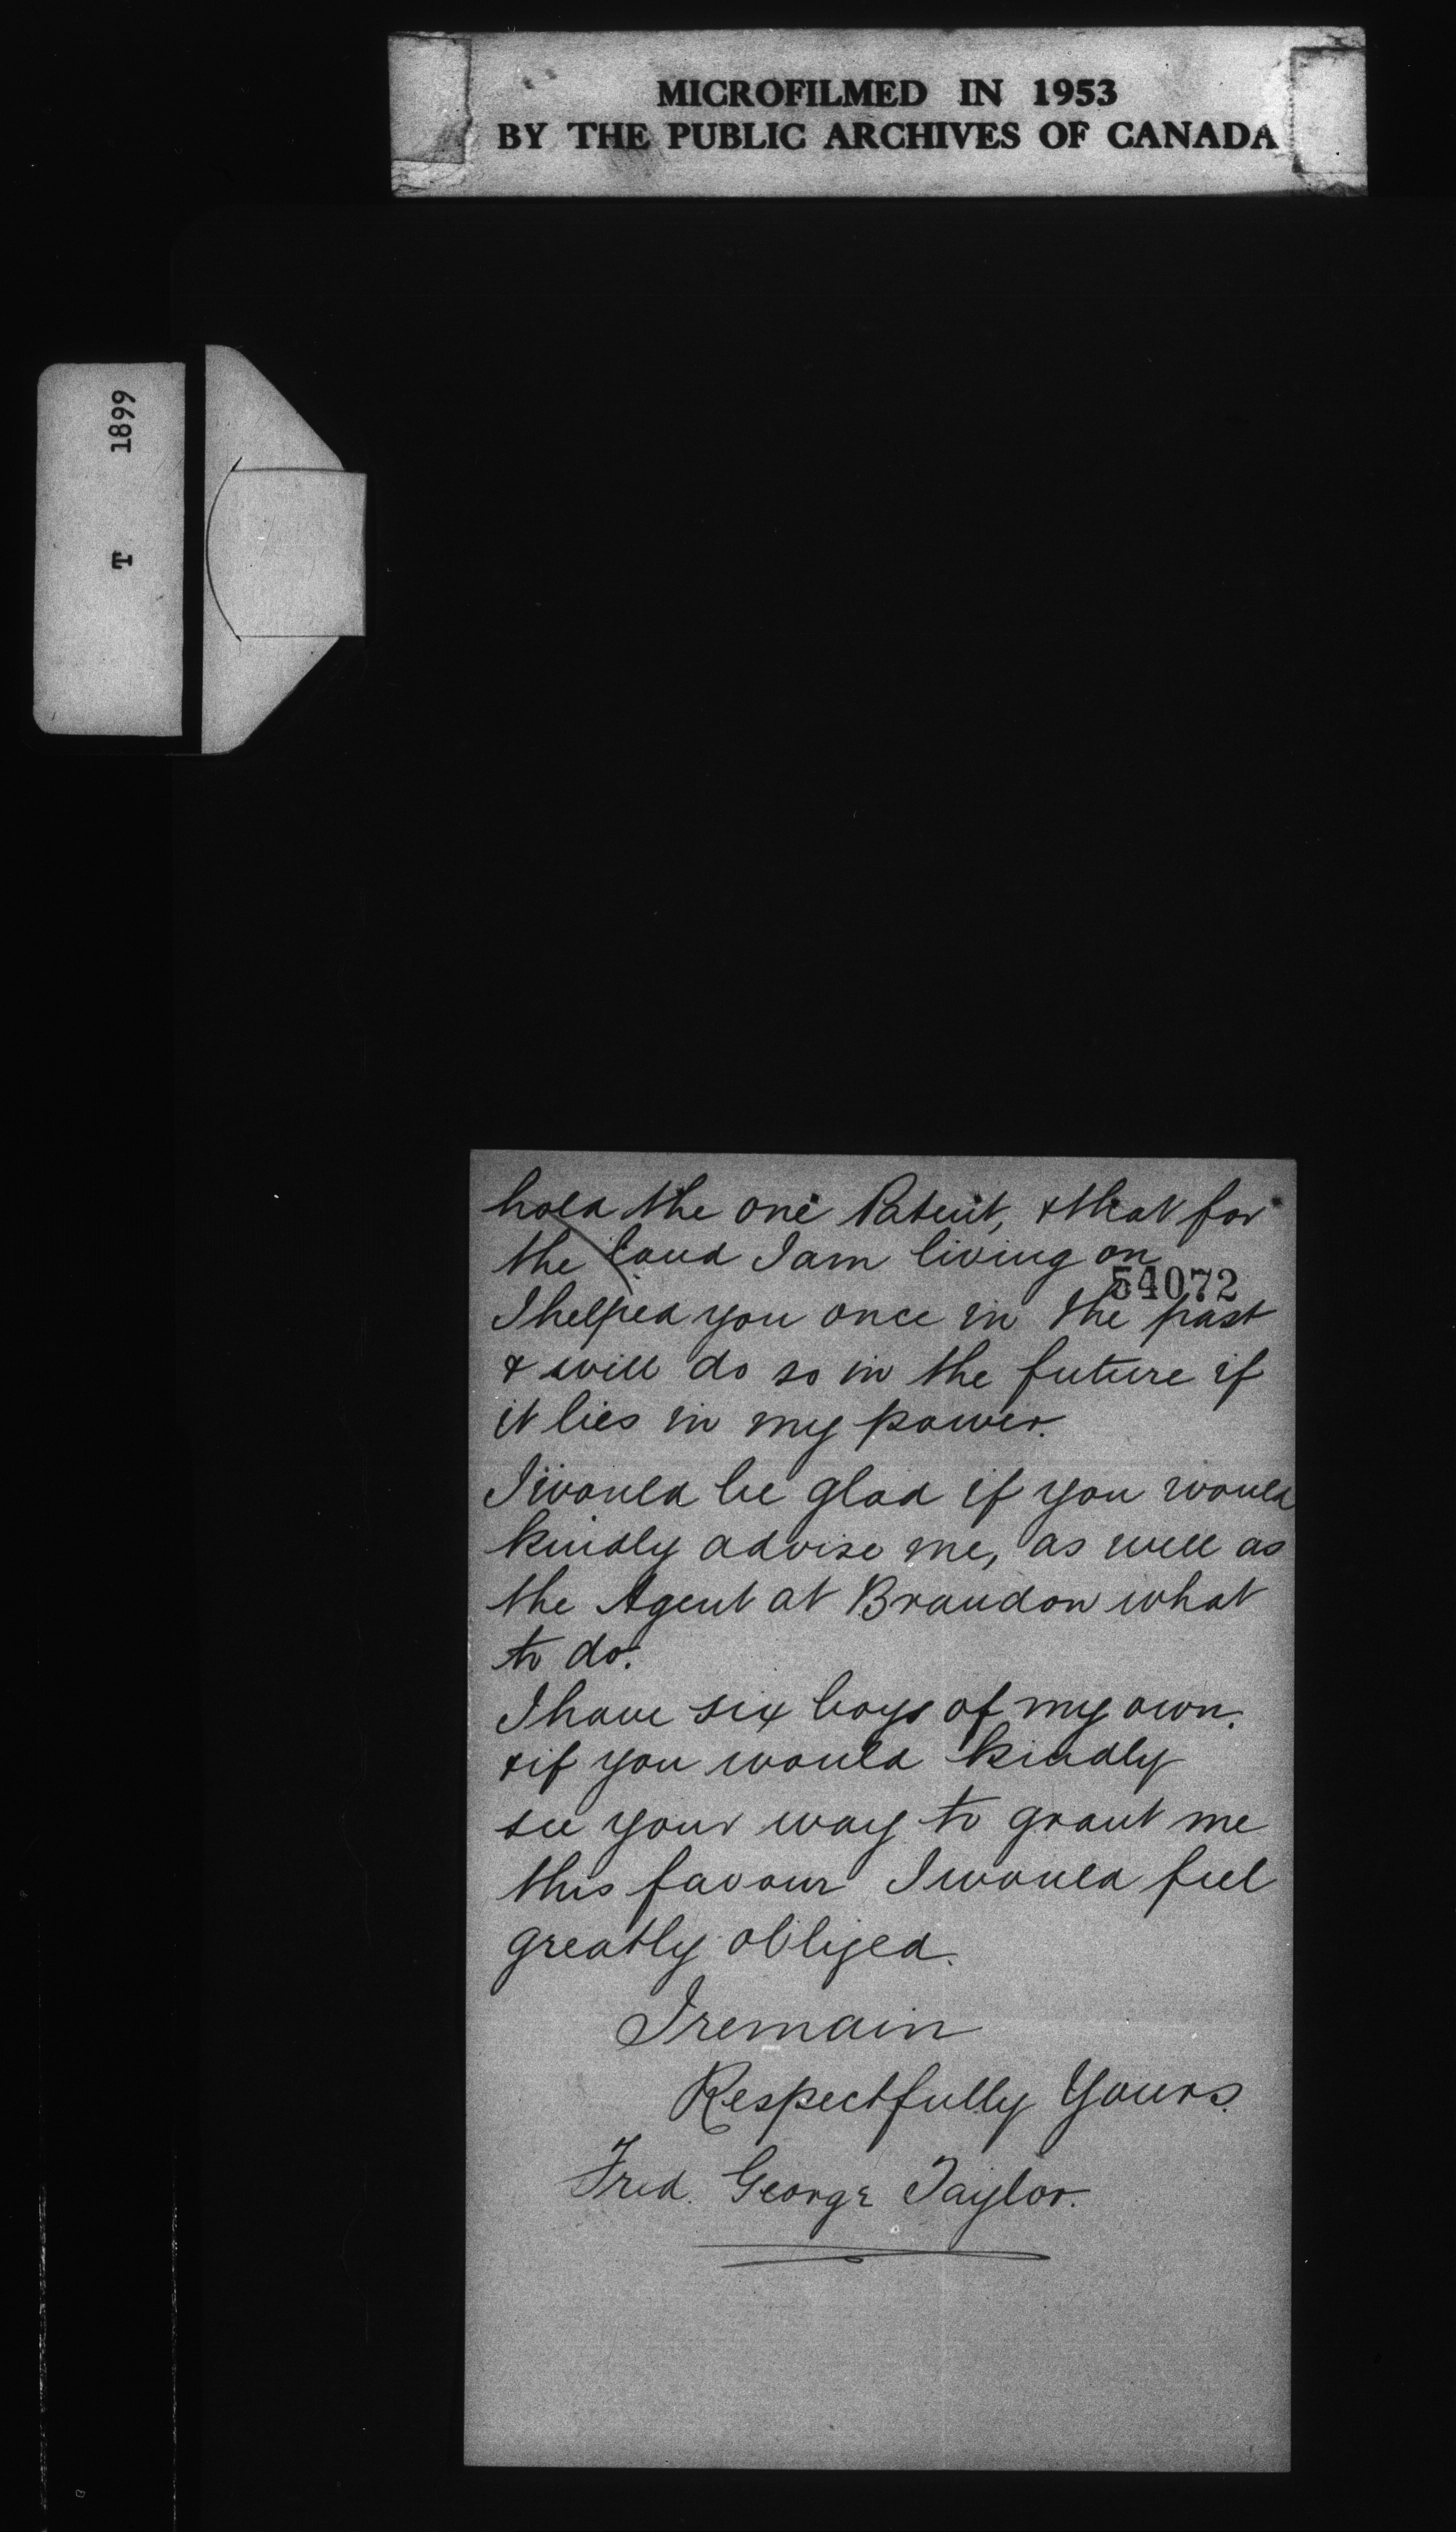 MICROFILMED IN 1953
BY THE PUBLIC ARCHIVES OF CANADA
T 1899
hold the one Patent, & that for
the land I am living on
54072
I helped you once in the past
& will do so in the future if
it lies in my power.
I would be glad if you would
kindly advise me, as well as
the Agent at Brandon what
to do.
I have six boys of my own.
& if you would kindly
see your way to grant me
this favour I would feel
greatly obliged.
I remain
Respectfully Yours.
Fred. George Taylor.